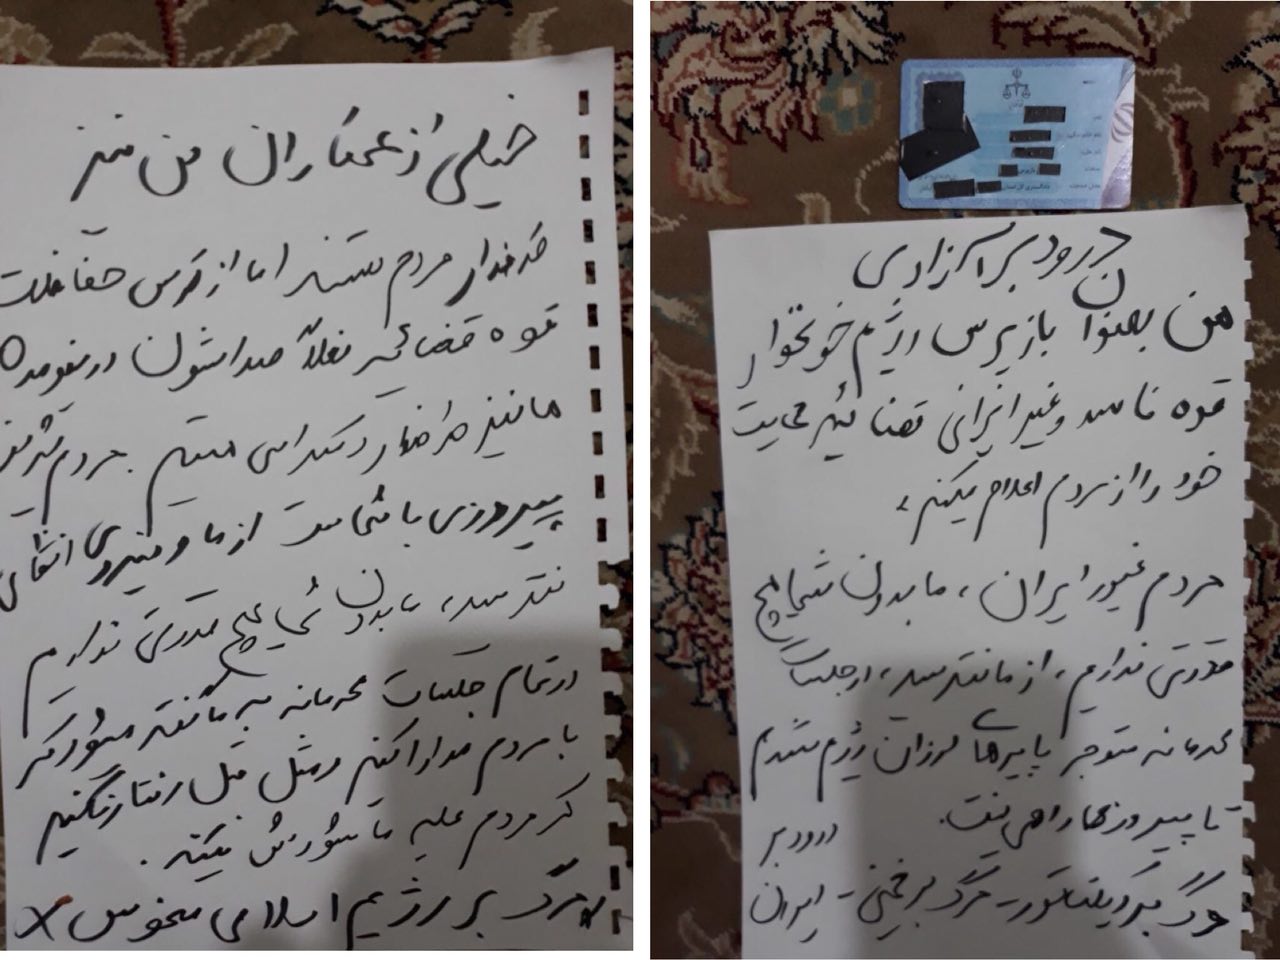 درود بر آزادی
من بعنوان بازپرس رژیم خونخوار
قوه فاسد و غیر ایرانی قضائیه حمایت
خود را از مردم اعلام میکنم،
مردم غیور ایران، ما بدون شما هیچ
قدرتی نداریم، از ما نترسید، در جلسات
محرمانه متوجه پایه‌های لرزان رژیم شدم
تا پیروزی راهی نیست.
درود بر
مرگ بر دیکتاتور - مرگ بر خمینی - ایران
خیلی از همکاران من نیز
طرفدار مردم هستند اما از ترس حفاظت
قوه قضائیه فعلاً صداشون در نیومده
ما نیز طرفدار دمکراسی هستیم. مردم
پیروزی با شماست از ما و نیروی انتظامی
نترسید، ما بدون شما هیچ قدرتی نداریم
در تمام جلسات محرمانه به ما گفته میشود که
با مردم مدارا کنیم و مثل قبل رفتار نکنیم
که مردم علیه ما شورش نکنند.
مرگ بر رژیم اسلامی منحوس
بازپرس
دادگستری کل استان